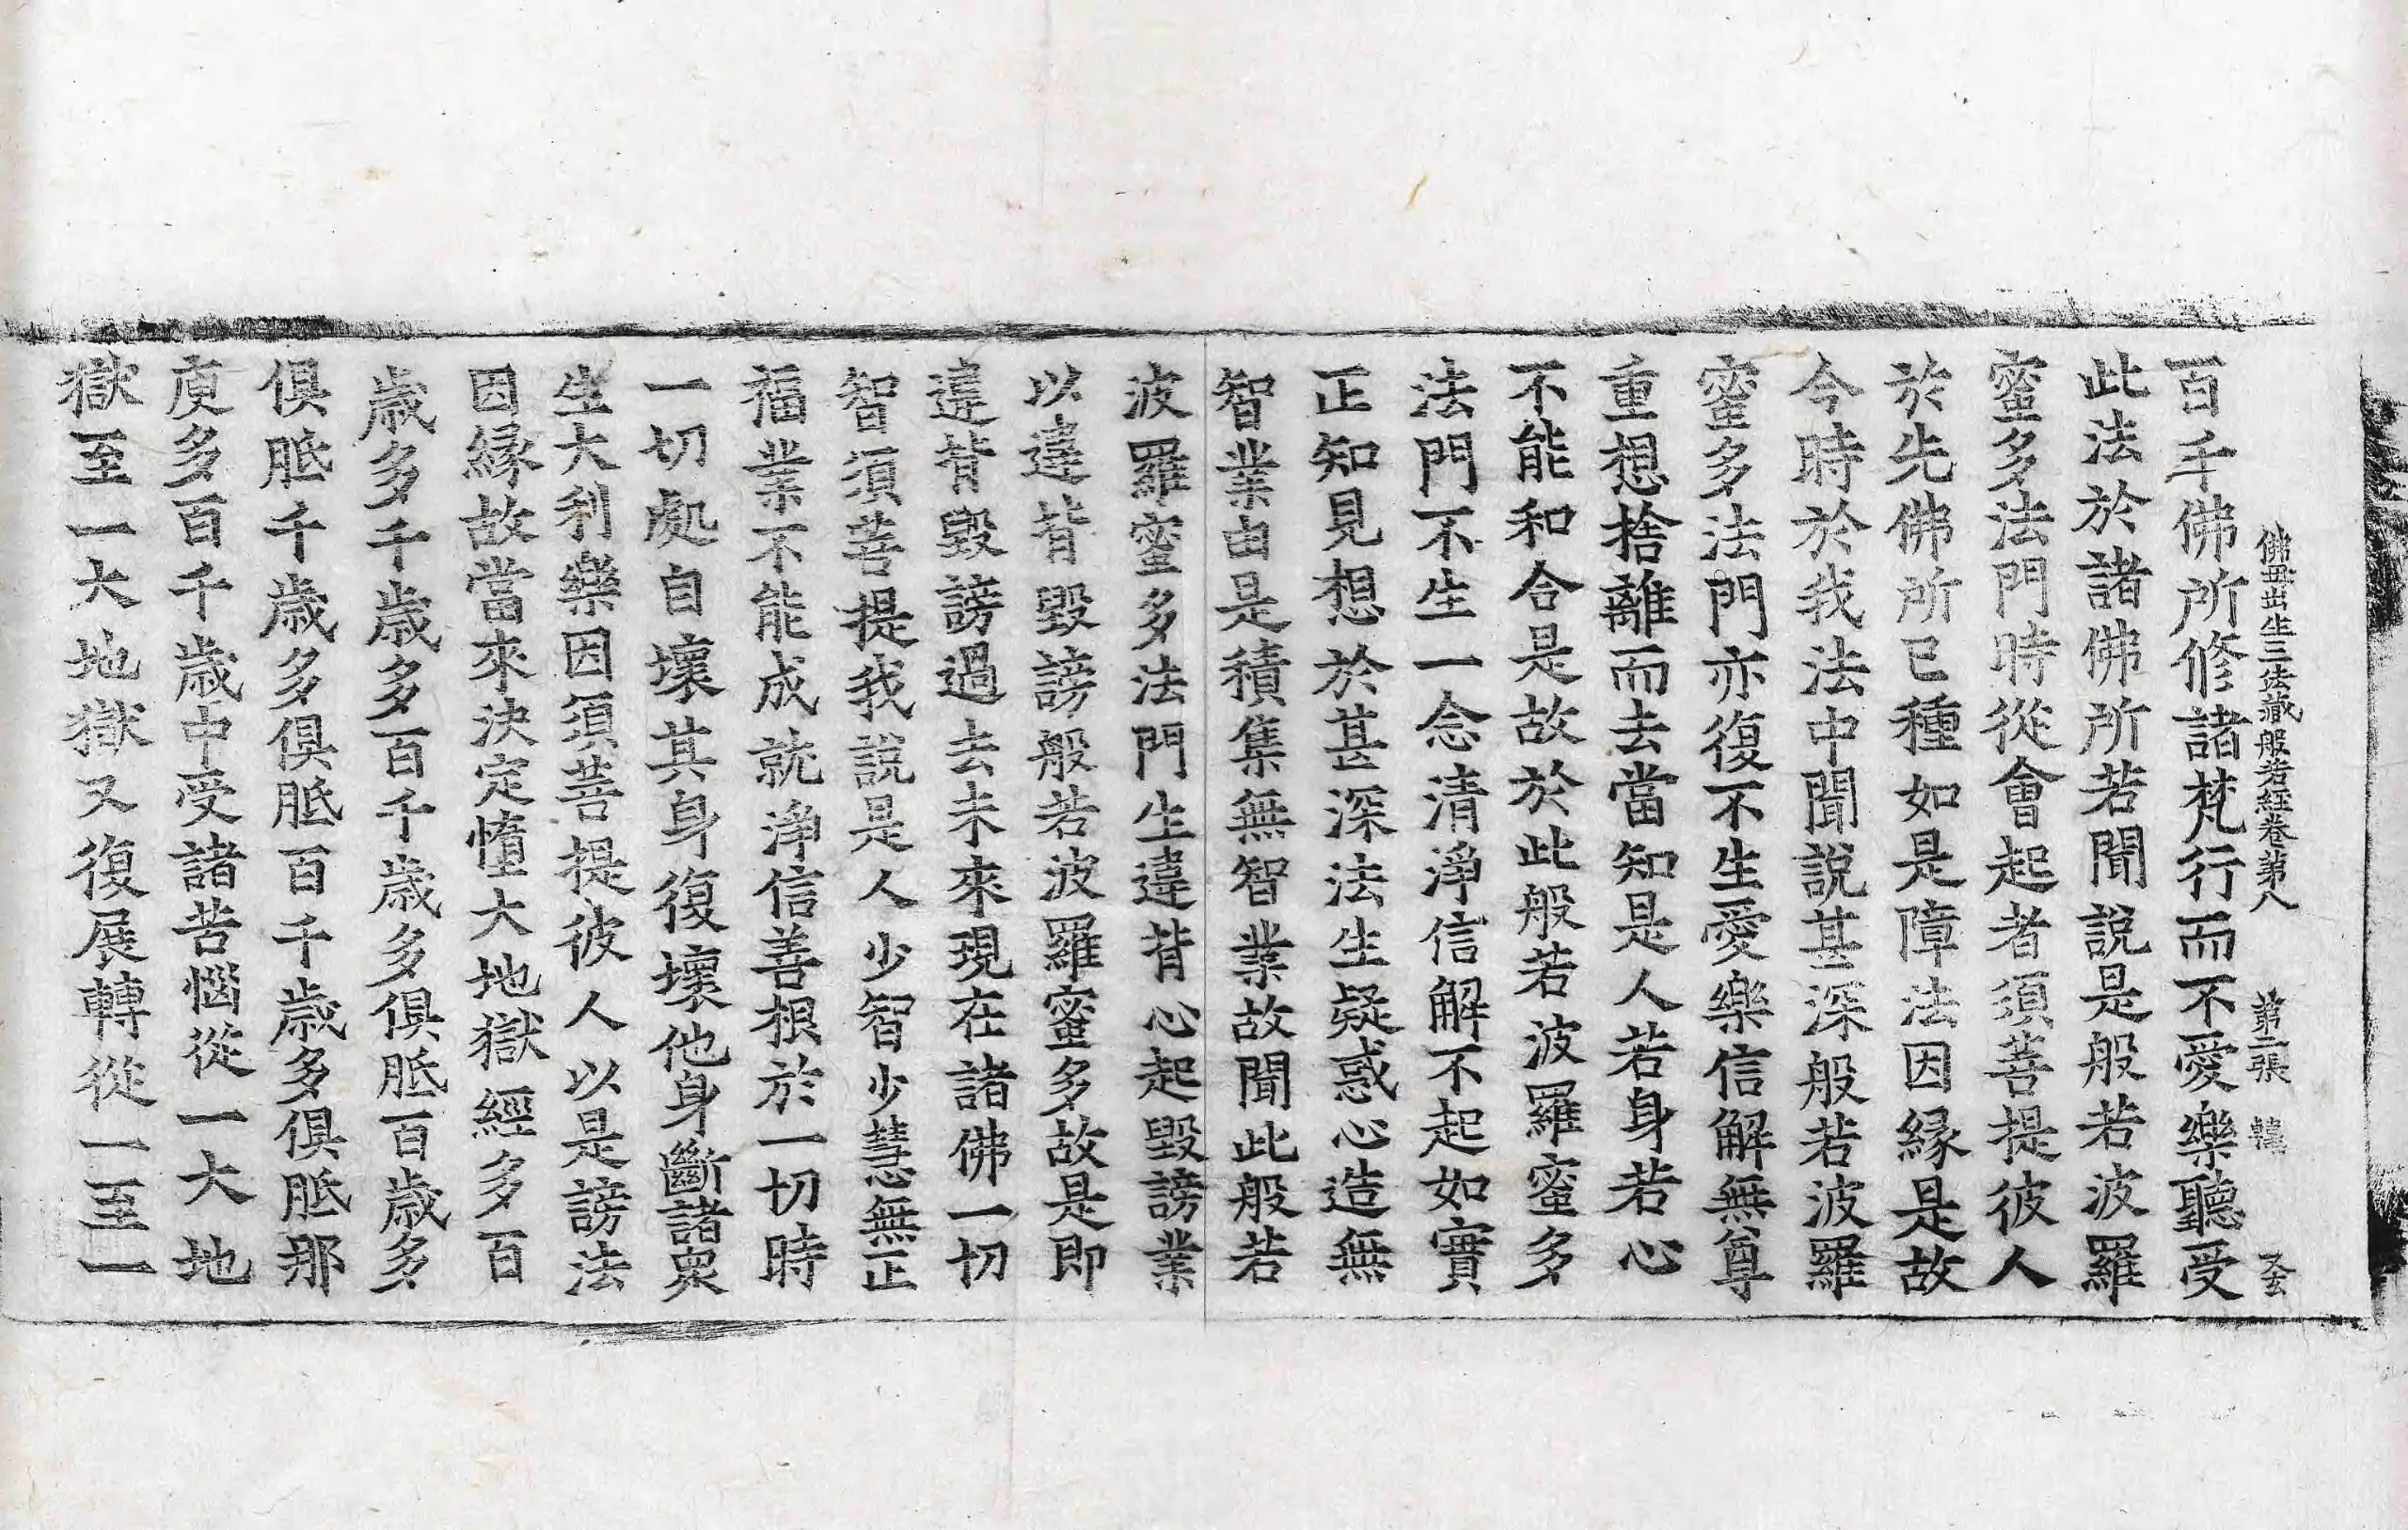 佛母出生三法藏般若經卷第八 第二張 韓 又玄
百千佛所修諸梵行而不愛樂聽受
此法於諸佛所若聞說是般若波羅
蜜多法門時從會起者須菩提彼人
於先佛所已種如是障法因緣是故
今時於我法中聞說甚深般若波羅
蜜多法門亦復不生愛樂信解無尊
重想捨離而去當知是人若身若心
不能和合是故於此般若波羅蜜多
法門不生一念清淨信解不起如實
正知見想於甚深法生疑惑心造無
智業由是積集無智業故聞此般若
波羅蜜多法門生違背心起毀謗業
以違背毀謗般若波羅蜜多故是即
違背毀謗過去未來現在諸佛一切
智須菩提我說是人少智少慧無正
福業不能成就淨信善根於一切時
一切處自壞其身復壞他身斷諸衆
生大利樂因須菩提彼人以是謗法
因緣故當來決定墮大地獄經多百
歲多千歲多百千歲多俱胝百歲多
俱胝千歲多俱胝百千歲多俱胝那
庾多百千歲中受諸苦惱從一大地
獄至一大地獄又復展轉從一至一